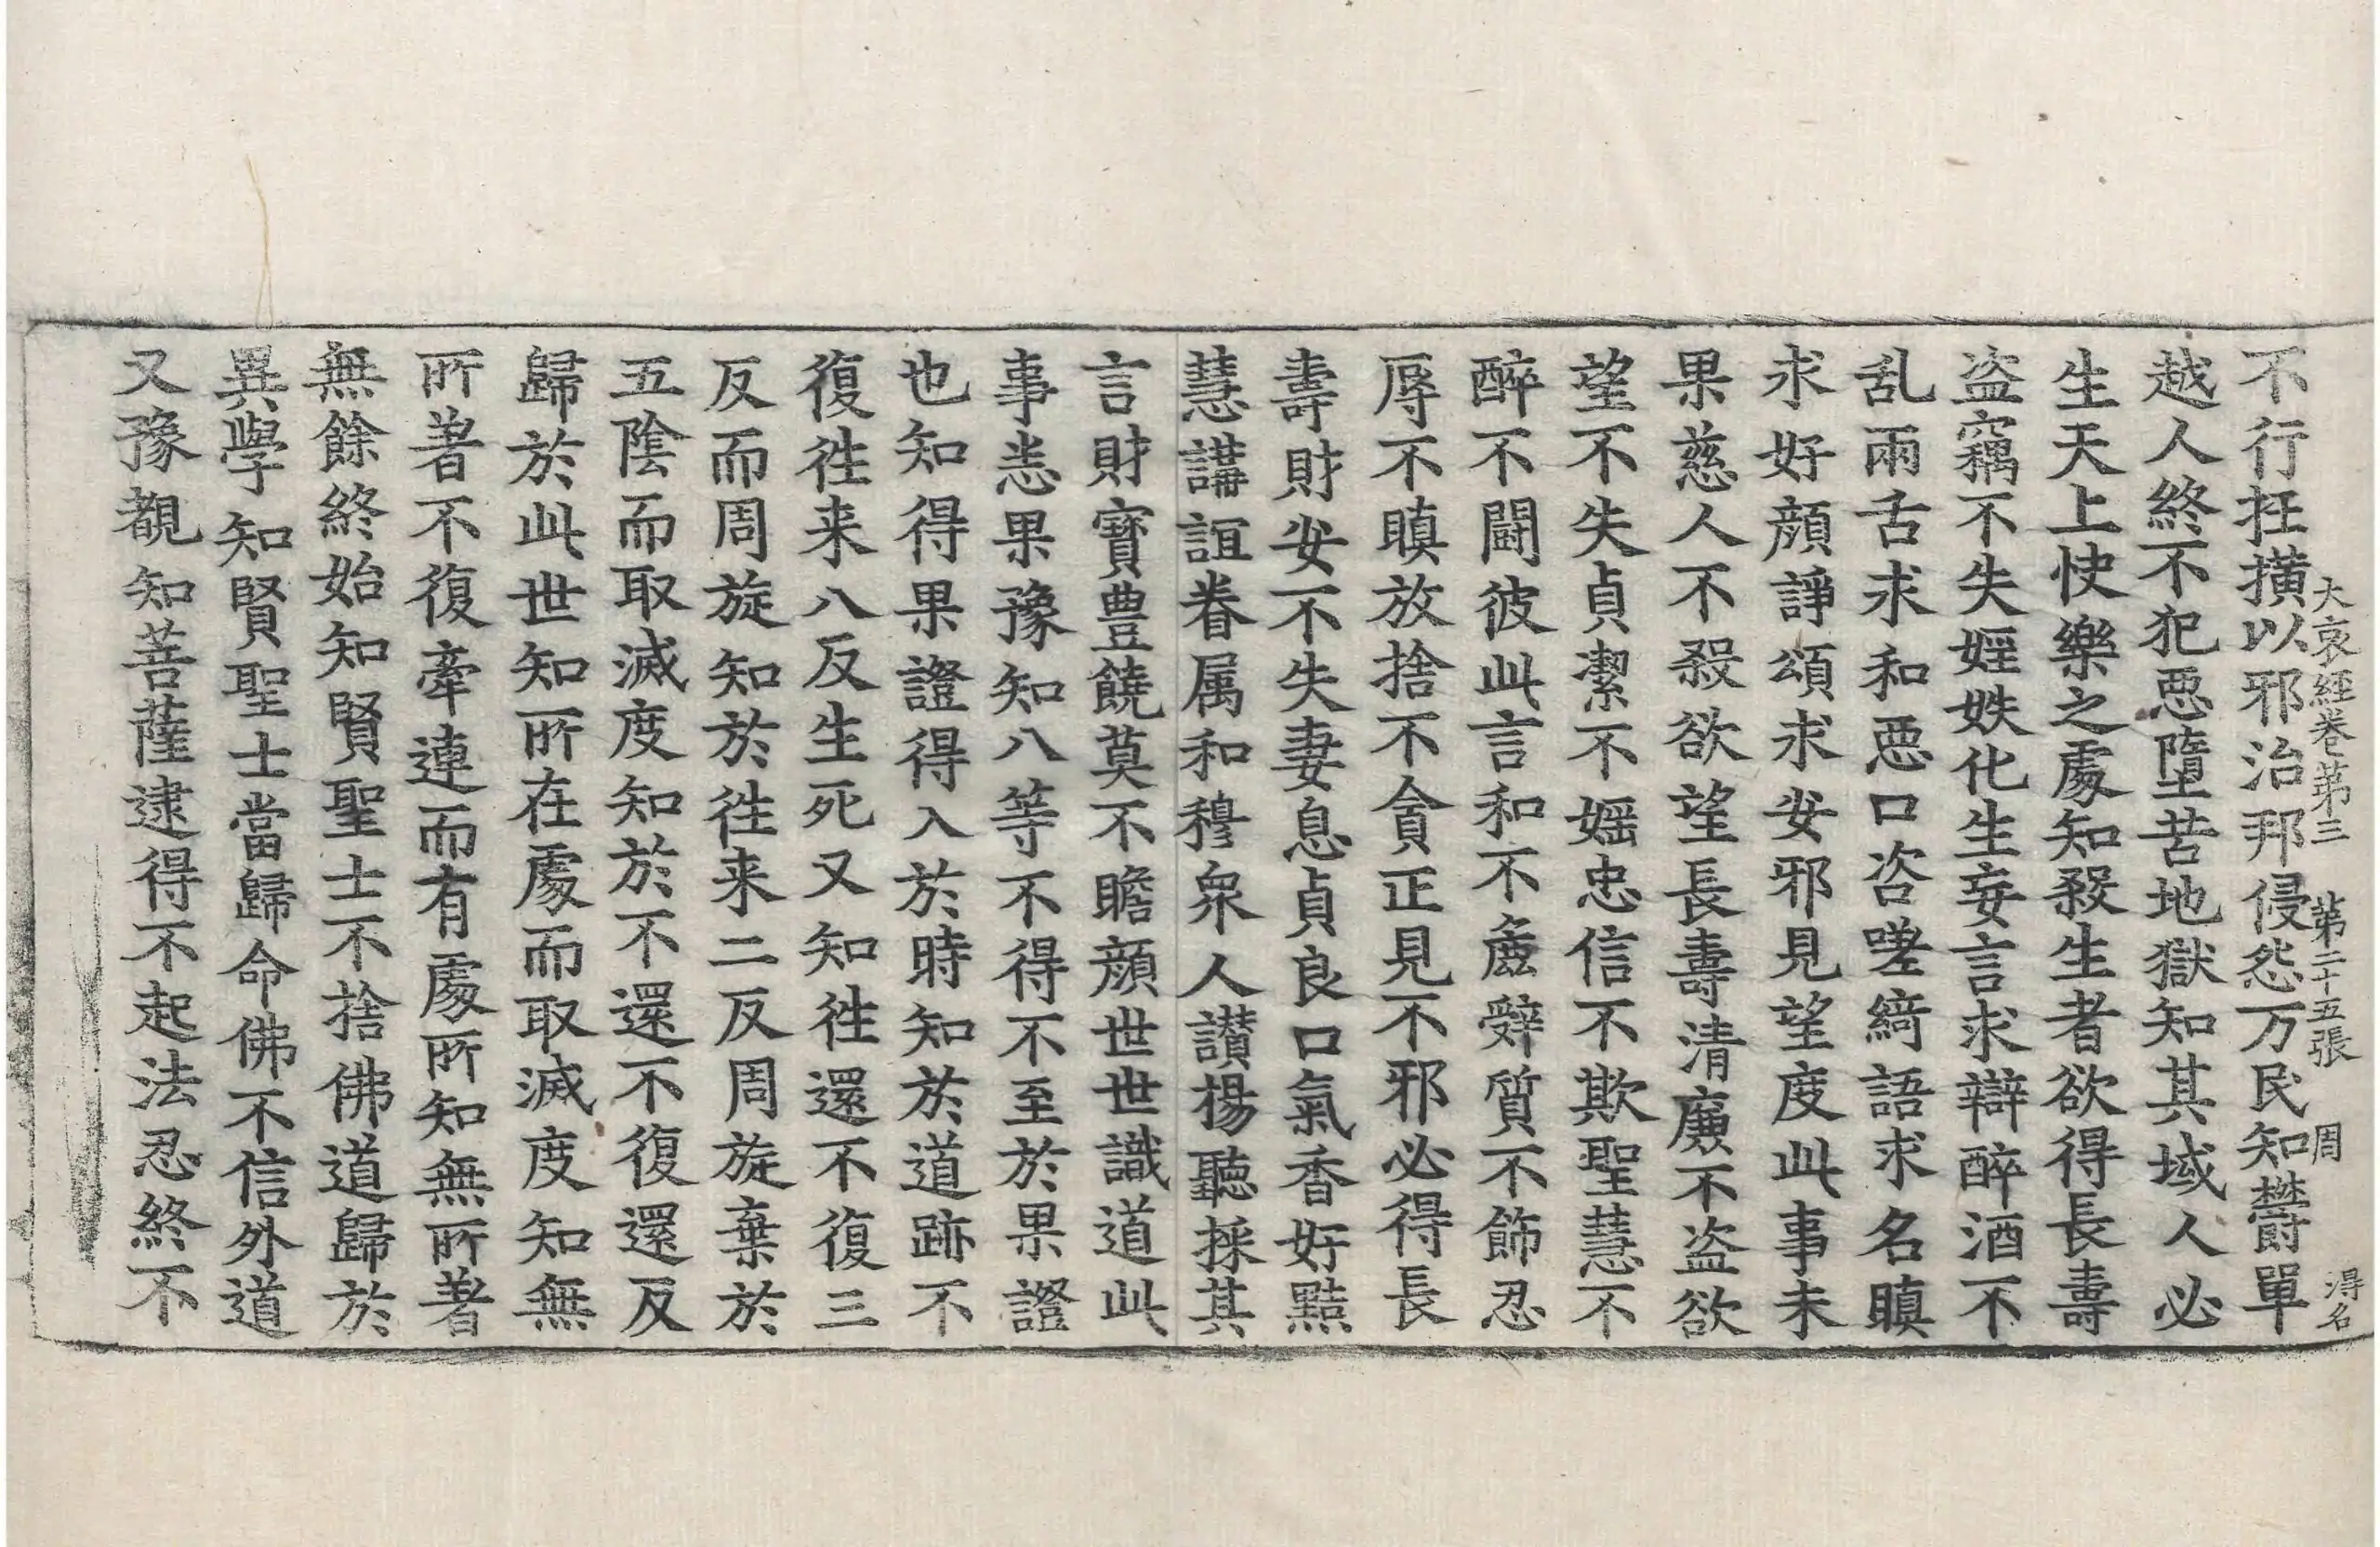 大哀経卷第三 第二十五張 周 淂名
不行抂撗以邪治邦侵怨万民知欝單
越人終不犯惡墮苦地獄知其域人必
生天上快樂之處知殺生者欲得長壽
盗竊不失婬妷化生妄言求辯醉酒不
乱兩舌求和惡口咨嗟綺語求名瞋
求好顔諍頌求安邪見望度此事未
果慈人不殺欲望長壽清廉不盗欲
望不失貞潔不婬忠信不欺聖慧不
醉不鬪彼此言和不麁辤質不飾忍
辱不瞋放捨不貪正見不邪必得長
壽財安不失妻息貞良口氣香好黠
慧講誼眷属和穆衆人讃揚聽採其
言財寳豊饒莫不瞻顔世世識道此
事恙果豫知八等不得不至於果證
也知得果證得入於時知於道跡不
復徃来八反生死又知徃還不復三
反而周旋知於徃来二反周旋棄於
五隂而取滅度知於不還不復還反
歸於此世知所在處而取滅度知無
所著不復牽連而有處所知無所著
無餘終始知賢聖士不捨佛道歸於
異學知賢聖士當歸命佛不信外道
又豫覩知菩薩逮得不起法忍終不